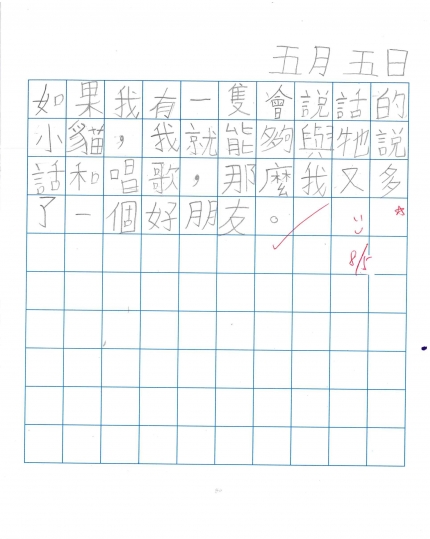 五月五日
如果我有一隻會說話的
小貓，我就能夠與牠說
話和唱歌，那麼我又多
了一個好朋友。
8/5